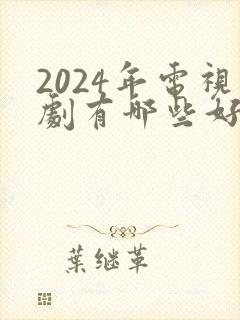 2024年電視
劇有哪些好
葉继革